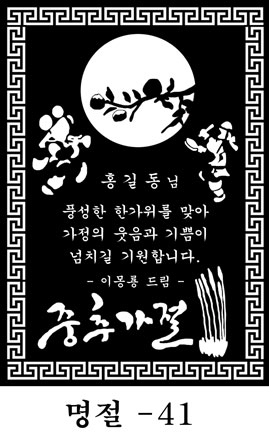 홍길동님
풍성한 한가위를 맞아
가정의 웃음과 기쁨이
넘치길 기원합니다.
- 이몽룡 드림 -
중추가절
명절 -41